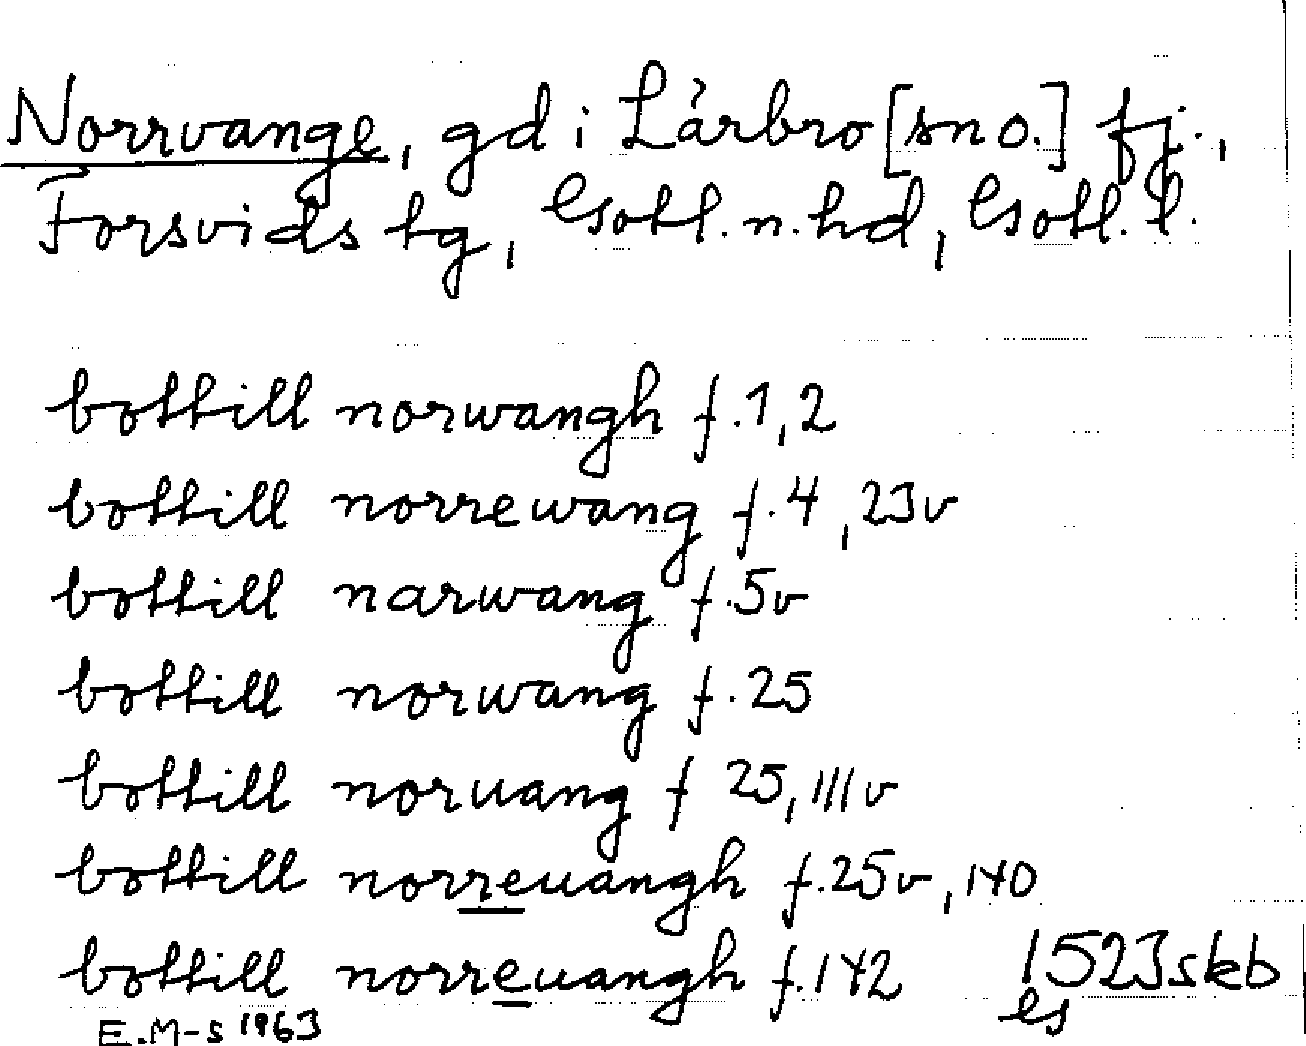 Norrvange, gd i Lärbro [sn o.] fj.,
Forsvids tg, Gotl. n. hd, Gotl. l.
bottill norwangh f. 1, 2
bottill norrewang f. 4, 23v
bottill narwang f. 5v
bottill norwang f. 25
bottill noruang f 25, 111v
bottill norreuangh f. 25v, 140
bottill norreuangh f. 142 1523 skb
E. M-s 1963 Gs